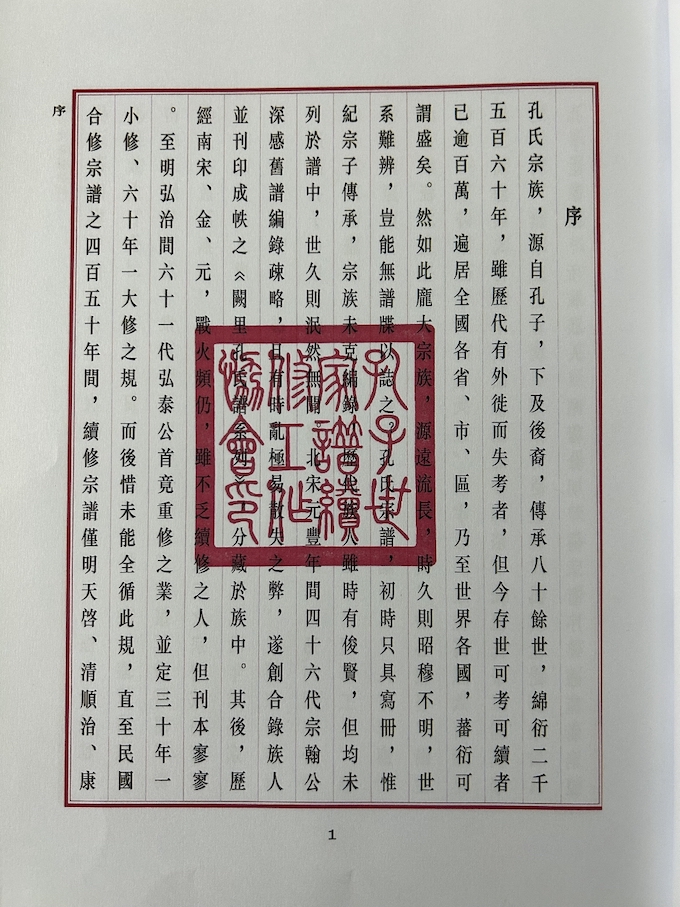 序
序
孔氏宗族，源自孔子，下及後裔，傳承八十餘世，綿衍二千
五百六十年，雖歷代有外徙而失考者，但今存世可考可續者
已逾百萬，遍居全國各省、市、區，乃至世界各國，蕃衍可
謂盛矣。然如此龐大宗族，源遠流長，時久則昭穆不明，世
系難辨，豈能無譜牒以誌之。孔氏宗譜，初時只具寫冊，惟
紀宗子傳承，宗族未克編錄。歷代族人雖時有俊賢，但均未
列於譜中，世久則泯然無聞。北宋元豐年間四十六代宗翰公
深感舊譜編錄疎略，且有時亂極易散失之弊，遂創合錄族人
並刊印成帙之《闕里孔氏譜系列》，分藏於族中。其後，歷
經南宋、金、元，戰火頻仍，雖不乏續修之人，但刊本寥寥
。至明弘治間六十一代弘泰公首竟重修之業，並定三十年一
小修、六十年一大修之規。而後惜未能全循此規，直至民國
合修宗譜之四百五十年間，續修宗譜僅明天啓、清順治、康
孔子世
家譜續
修工作
協會印
1